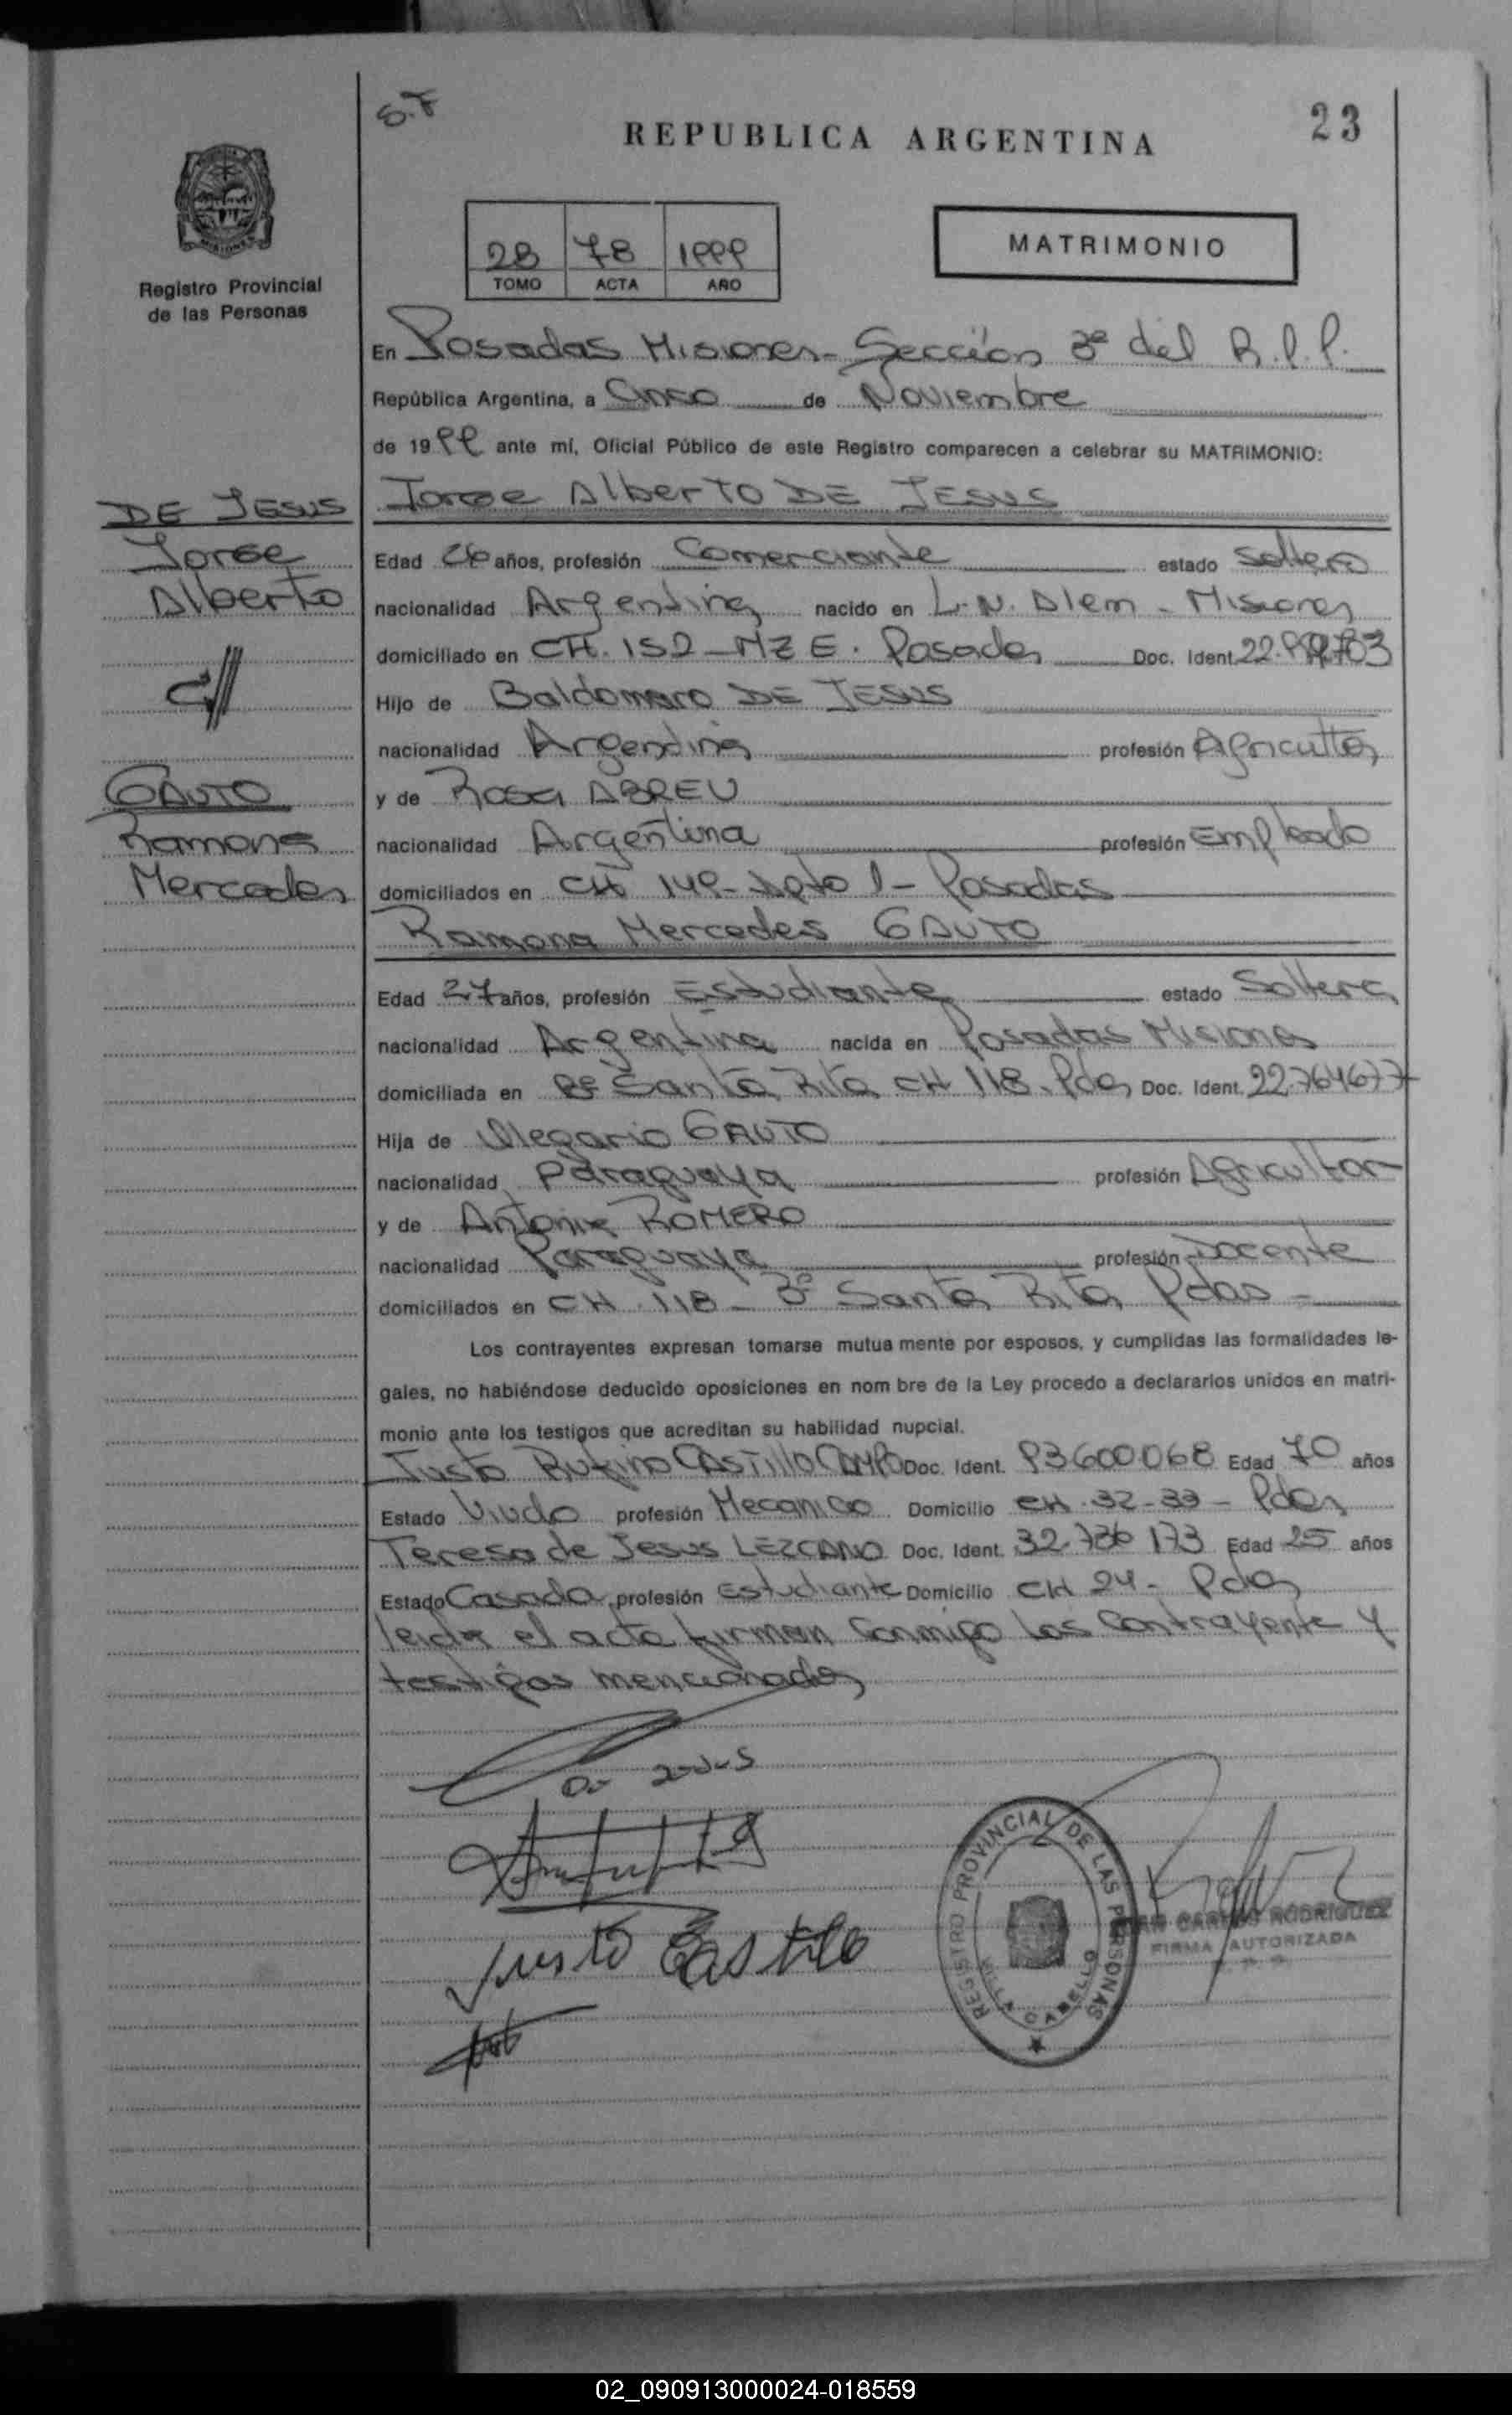 S.F
REPUBLICA ARGENTINA
23
2B 78 1999
TOMO ACTA AÑO
MATRIMONIO
Registro Provincial
de las Personas
En Posadas Misiones - Sección 3ª del R.P.P.
República Argentina, a Cinco de Noviembre
de 1999 ante mí, Oficial Público de este Registro comparecen a celebrar su MATRIMONIO:
DE JESUS
Jorge
Alberto
c//
GAUTO
Ramona
Mercedes
Jorge Alberto DE JESUS
Edad años, profesión Comerciante estado Soltero
nacionalidad Argentina nacido en L.N. Alem - Misiones
domiciliado en CH. 152 - MZ E. Posadas Doc. Ident. 22.
Hijo de Baldomero DE JESUS
nacionalidad Argentina profesión Agricultor
y de Rosa ABREU
nacionalidad Argentina profesión Empleado
domiciliados en CH 149 - Dpto 1 - Posadas
Ramona Mercedes GAUTO
Edad 27 años, profesión Estudiante estado Soltera
nacionalidad Argentina nacida en Posadas Misiones
domiciliada en Bº Santa Rita CH 118 - Pdas Doc. Ident. 22.764677
Hija de Olegario GAUTO
nacionalidad Paraguaya profesión Agricultor
y de Antonia ROMERO
nacionalidad Paraguaya profesión Docente
domiciliados en CH 118 - Bº Santa Rita Pdas -
Los contrayentes expresan tomarse mutua mente por esposos, y cumplidas las formalidades le-
gales, no habiéndose deducido oposiciones en nom bre de la Ley procedo a declararlos unidos en matri-
monio ante los testigos que acreditan su habilidad nupcial.
Justo Rufino CASTILLO CAMPO Doc. Ident. 93600068 Edad 70 años
Estado Viudo profesión Mecanico Domicilio CH. 32-33 - Pdas
Teresa de Jesus LEZCANO Doc. Ident. 32.736 173 Edad 25 años
Estado Casada profesión Estudiante Domicilio CH 24 - Pdas
leida el acta firman conmigo los contrayente y
testigos mencionados
De Jesus
Justo Castillo
REGISTRO PROVINCIAL DE LAS PERSONAS
VILLA CABELLO
JUAN CARLOS RODRIGUEZ
FIRMA AUTORIZADA
02_090913000024-018559